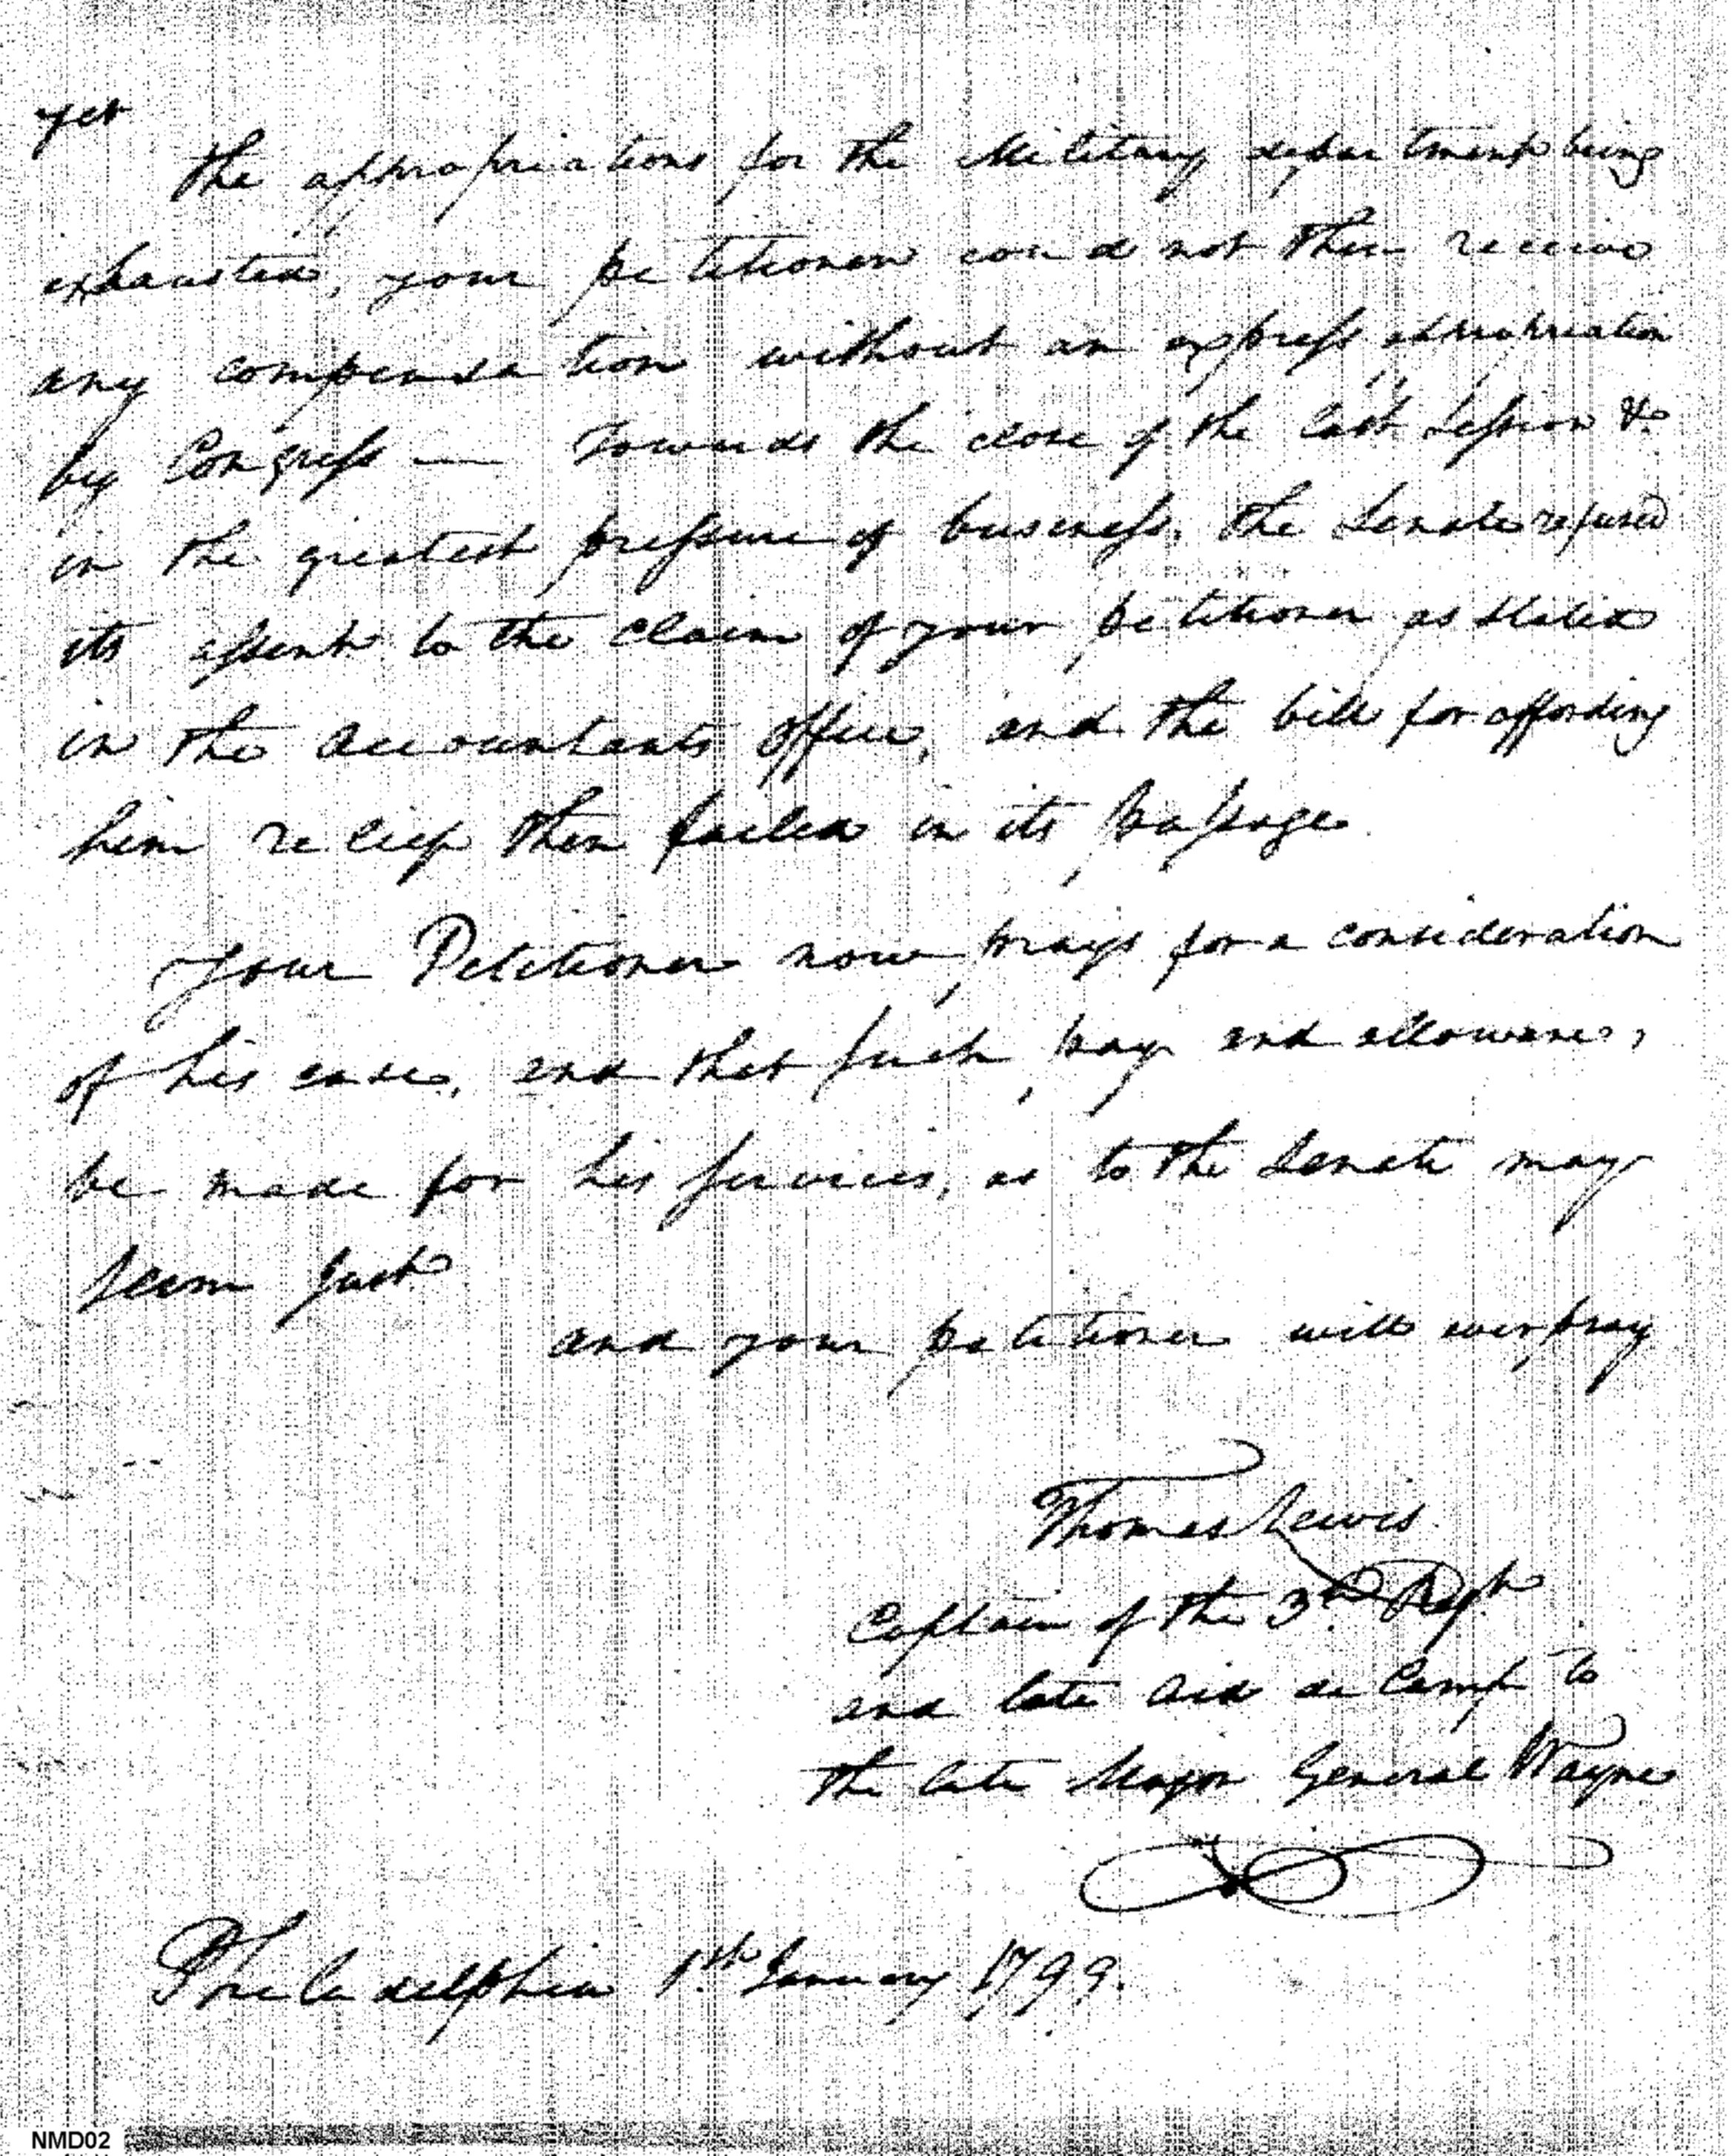 yet
the appropriations for the Military department being
exhausted, your petitioner could not then receive
any compensation without an express appropriation
by Congress — Towards the close of the last Session &
in the greatest pressure of business, the Senate refused
its assent to the claim of your petitioner as stated
in the Accountants office, and the bill for affording
him relief then failed in its passage.
Your Petitioner now prays for a consideration
of his case, and that such pay and allowance,
be made for his services, as to the Senate may
seem just
and your petitioner will ever pray
Thomas Lewis
Captain of the 3rd Regt
and late Aid de Camp to
the late Major General Wayne
Philadelphia 1st January 1799.
NMD02